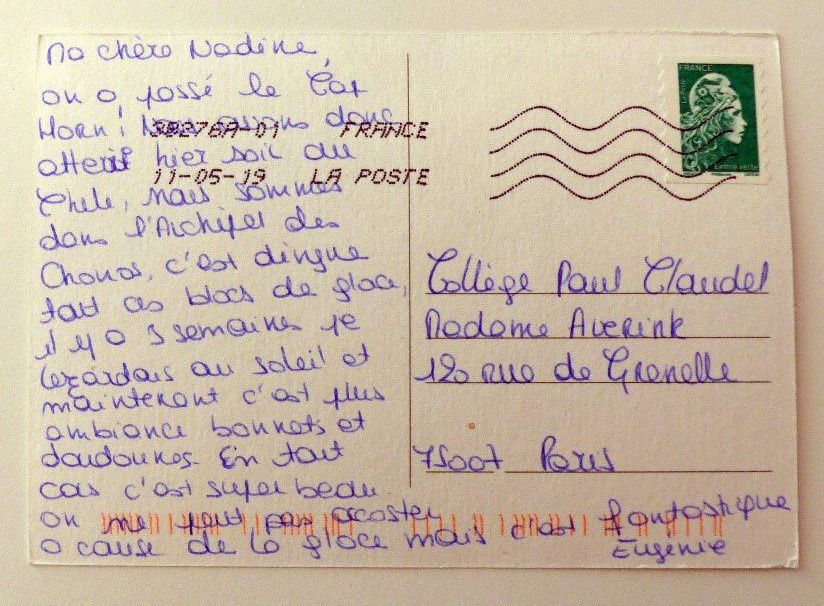 Ma chère Nadine,
on a passé le Cap
Horn ! Nous avons donc
atterri hier soir au
Chili, nous sommes
dans l'Archipel des
Chonos, c'est dingue
tout ces blocs de glace,
il y a 3 semaines je
lezardais au soleil et
maintenant c'est plus
ambiance bonnets et
doudounes. En tout
cas c'est super beau
on ne peut pas accoster
a cause de la glace mais c'est fantastique
Eugenie
38276A-01 FRANCE
11-05-19 LA POSTE
FRANCE
Lettre verte
Collège Paul Claudel
Madame Averink
120 rue de Grenelle
75007 Paris